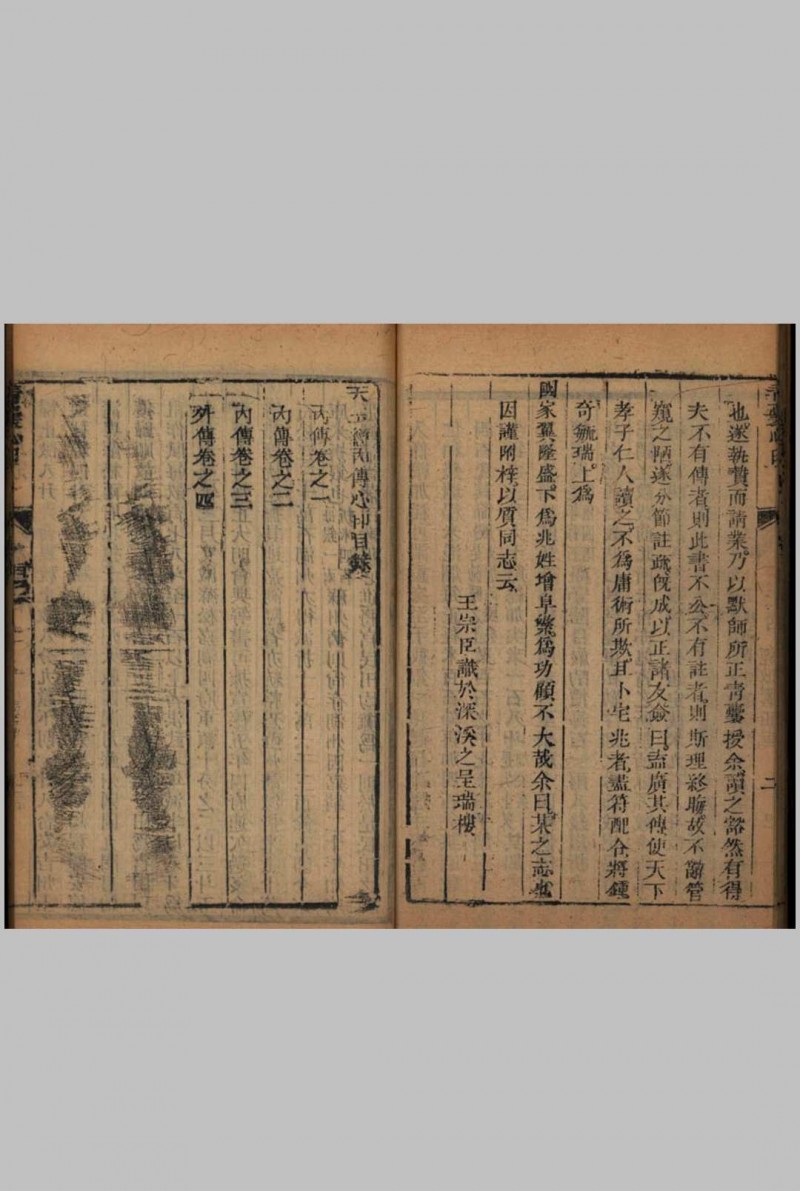 也遂執贄而請業乃以默師所正青囊授余讀之豁然有得
夫不有傳者則此書不公不有註者則斯理終晦故不辭管
窺之陋遂分節註疏旣成以正諸友僉曰盍廣其傳使天下
孝子仁人讀之不爲庸術所欺且卜宅兆者盡符配合將鍾
奇毓瑞上爲
國家翼隆盛下爲兆姓增阜蕃爲功顧不大哉余曰某之志也
因謹附梓以質同志云
王宗臣識於深溪之呈瑞樓
二
天玉經內傳心印目錄
內傳卷之一
內傳卷之二
內傳卷之三
外傳卷之四